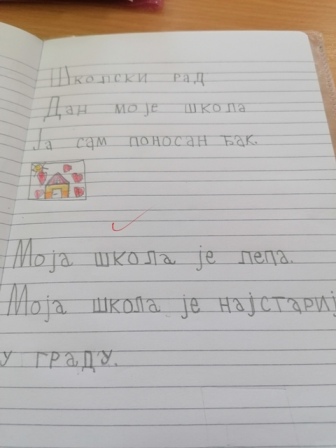 Школски рад
Дан моје школа
Ја сам поносан ђак.
Моја школа је лепа.
Моја школа је најстариј
у граду.